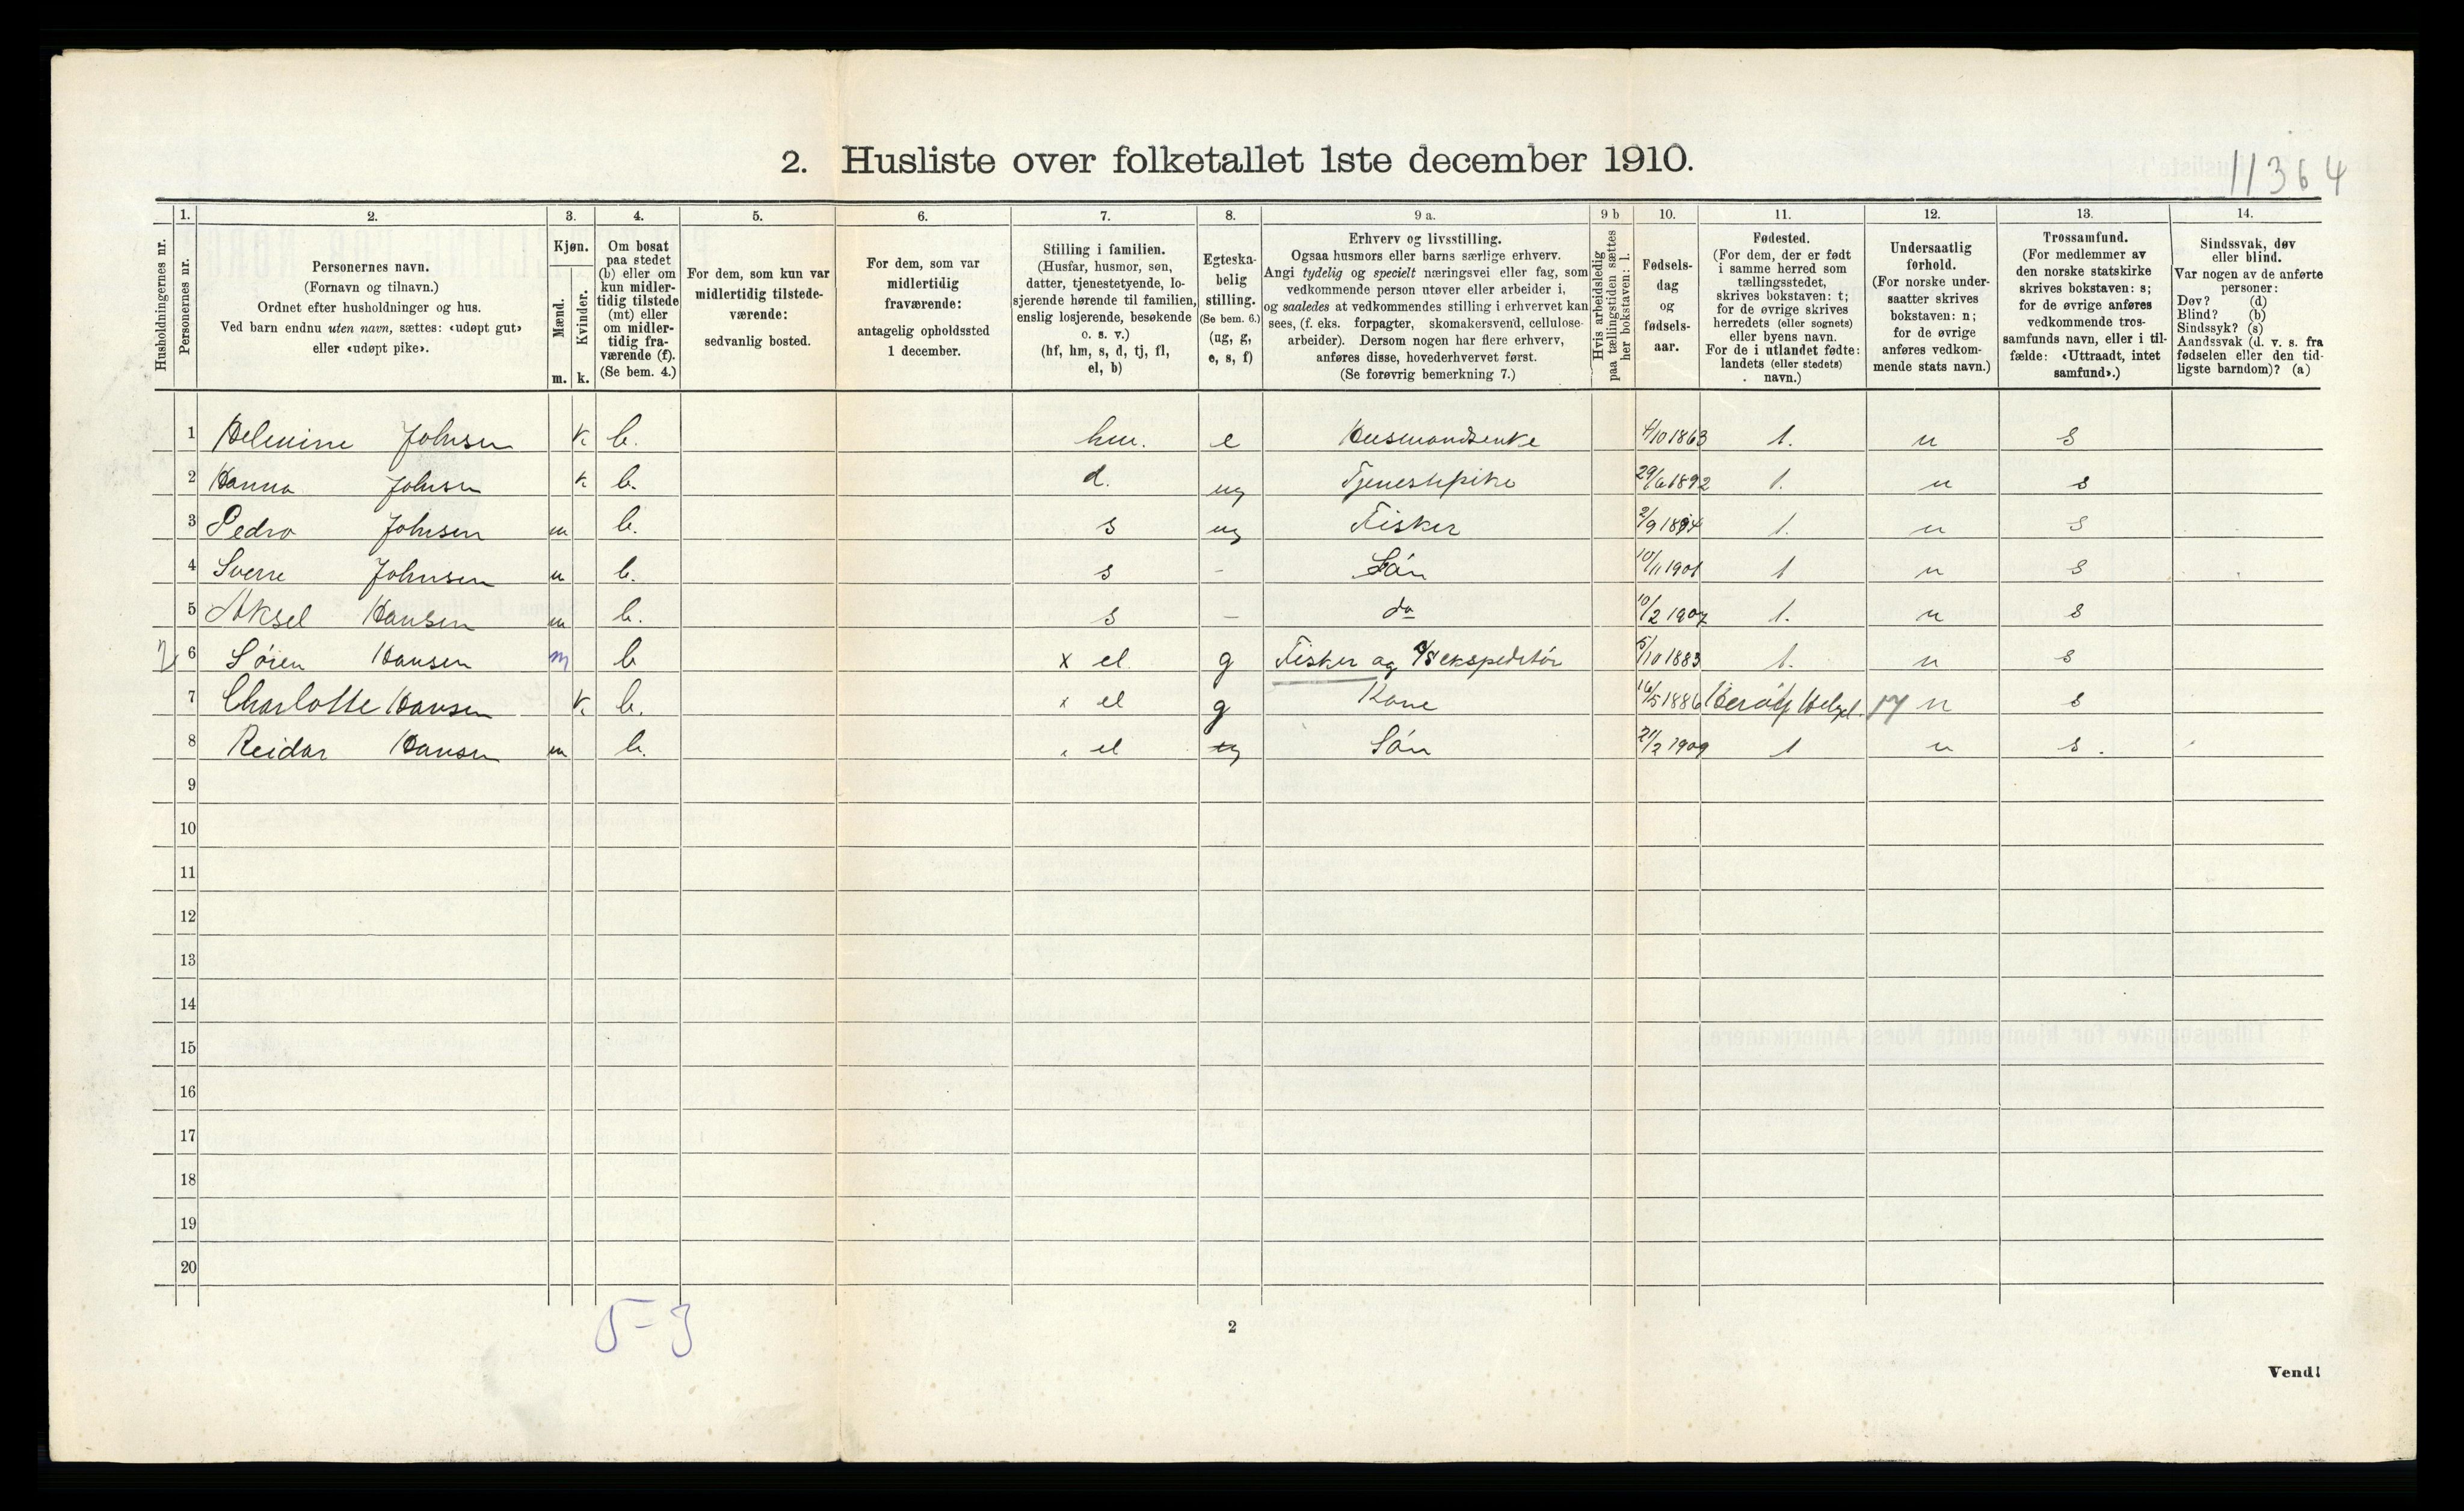 2. Husliste over folketallet 1ste december 1910.
11364
Husholdningernes nr.
1. Personernes nr.
2. Personernes navn. (Fornavn og tilnavn.) Ordnet efter husholdninger og hus. Ved barn endnu uten navn, sættes: «udøpt gut» eller «udøpt pike».
3. Kjøn. Mænd. m. Kvinder. k.
4. Om bosat paa stedet (b) eller om kun midler-tidig tilstede (mt) eller om midler-tidig fra-værende (f). (Se bem. 4.)
5. For dem, som kun var midlertidig tilstede-værende: sedvanlig bosted.
6. For dem, som var midlertidig fraværende: antagelig opholdssted 1 december.
7. Stilling i familien. (Husfar, husmor, søn, datter, tjenestetyende, lo-sjerende hørende til familien, enslig losjerende, besøkende o. s. v.) (hf, hm, s, d, tj, fl, el, b)
8. Egteska-belig stilling. (Se bem. 6.) (ug, g, e, s, f)
9 a. Erhverv og livsstilling. Ogsaa husmors eller barns særlige erhverv. Angi tydelig og specielt næringsvei eller fag, som vedkommende person utøver eller arbeider i, og saaledes at vedkommendes stilling i erhvervet kan sees, (f. eks. forpagter, skomakersvend, cellulose-arbeider). Dersom nogen har flere erhverv, anføres disse, hovederhvervet først. (Se forøvrig bemerkning 7.)
9 b Hvis arbeidsledig paa tællingstiden sættes her bokstaven: l.
10. Fødsels-dag og fødsels-aar.
11. Fødested. (For dem, der er født i samme herred som tællingsstedet, skrives bokstaven: t; for de øvrige skrives herredets (eller sognets) eller byens navn. For de i utlandet fødte: landets (eller stedets) navn.)
12. Undersaatlig forhold. (For norske under-saatter skrives bokstaven: n; for de øvrige anføres vedkom-mende stats navn.)
13. Trossamfund. (For medlemmer av den norske statskirke skrives bokstaven: s; for de øvrige anføres vedkommende tros-samfunds navn, eller i til-fælde: «Uttraadt, intet samfund».)
14. Sindssvak, døv eller blind. Var nogen av de anførte personer: Døv? (d) Blind? (b) Sindssyk? (s) Aandssvak (d. v. s. fra fødselen eller den tid-ligste barndom)? (a)
1 Helmine Johnsen k b. hm. e Husmandsenke 4/10 1863 t. n s
2 Hanna Johnsen k b. d. ug Tjenestepike 29/6 1892 t. n s
3 Pedro Johnsen m b. s ug Fisker 2/9 1894 t. n s
4 Sverre Johnsen m b. s - Søn 10/11 1901 t n s
5 Aksel Hansen m b. s - do 10/2 1907 t. n s
2 6 Søren Hansen m b x el. g Fisker og ekspeditør 5/10 1883 t. n s
7 Charlotte Hansen k b. x el g Kone 16/5 1886 Herøy Helgel. 17 n s
8 Reidar Hansen m b. x el ug Søn 21/2 1909 t n s.
9
10
11
12
13
14
15
16
17
18
19
20
5-3
2
Vend!